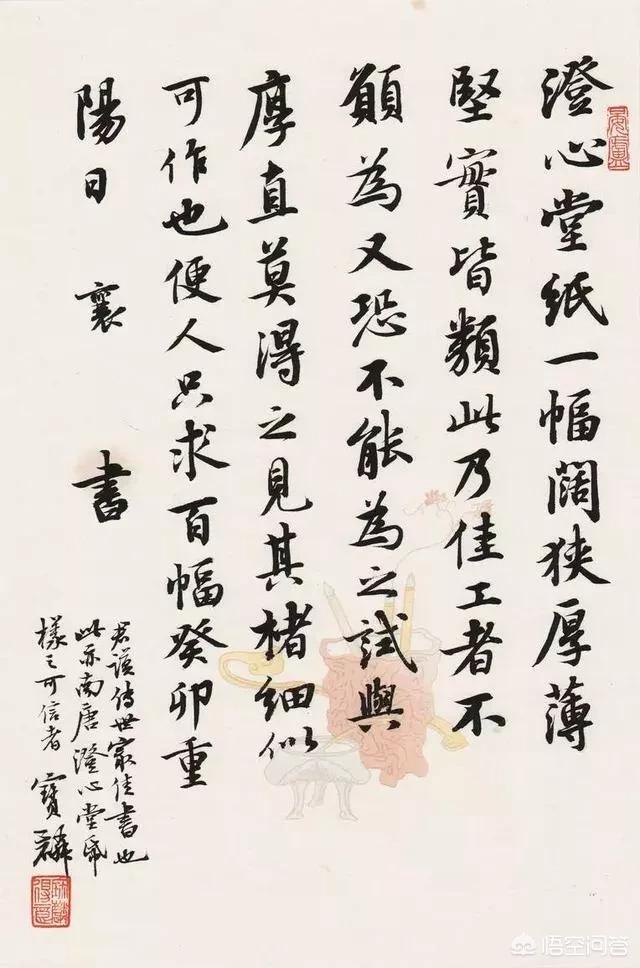 澄心堂紙一幅闊狹厚薄
堅實皆類此乃佳工者不
願為又恐不能為之試與
厚直莫得之見其楮細似
可作也便人只求百幅癸卯重
陽日 襄 書
君謨傳世最佳書也
此亦南唐澄心堂帋
樣之可信者 寶麟
悟空问答